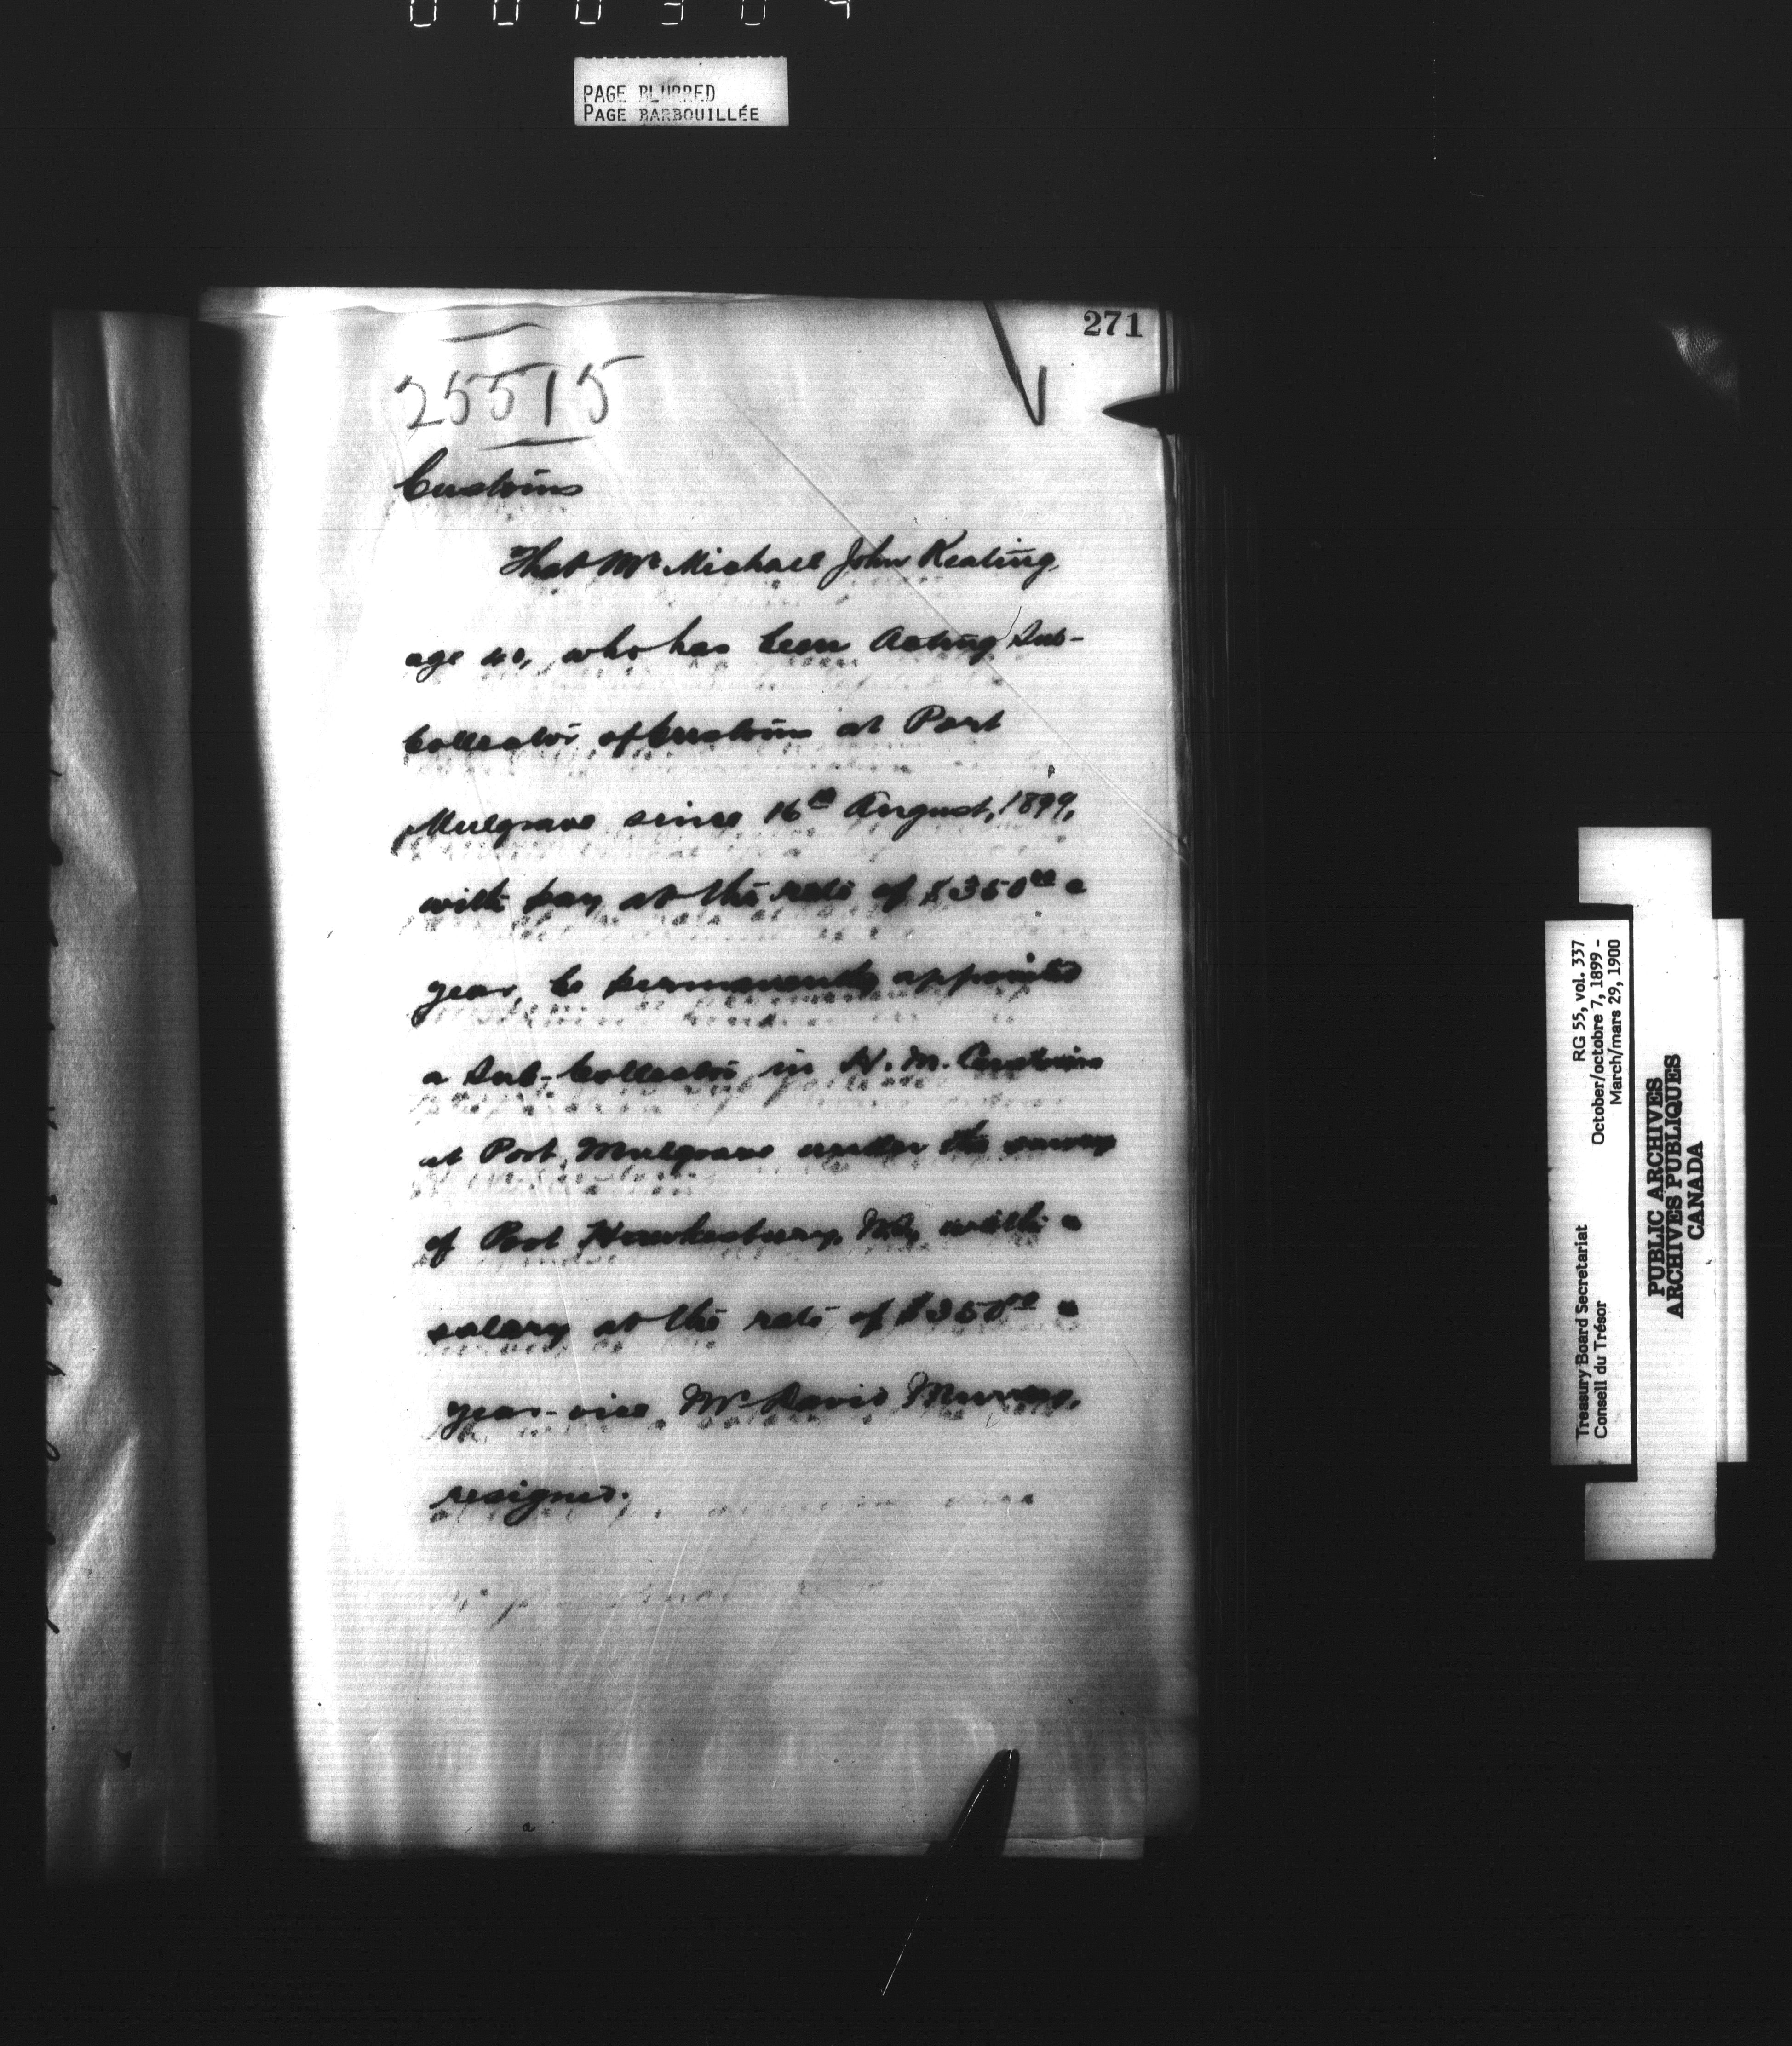 PAGE BLURRED
PAGE BARBOUILLÉE
271
25515
Customs
That Mr Michael John Keating,
age 40, who has been Acting Sub-
Collector of Customs at Port
Mulgrave since 16th August, 1899,
with pay at the rate of $350.00 a
year, be permanently appointed
a Sub-Collector in H. M. Customs
at Port Mulgrave under the survey
of Port Hawkesbury, N.S., with a
salary at the rate of $350.00 a
year - vice Mr David Murray,
resigned.
RG 55, vol. 337
October/octobre 7, 1899 -
March/mars 29, 1900
Treasury Board Secretariat
Conseil du Trésor
PUBLIC ARCHIVES
ARCHIVES PUBLIQUES
CANADA